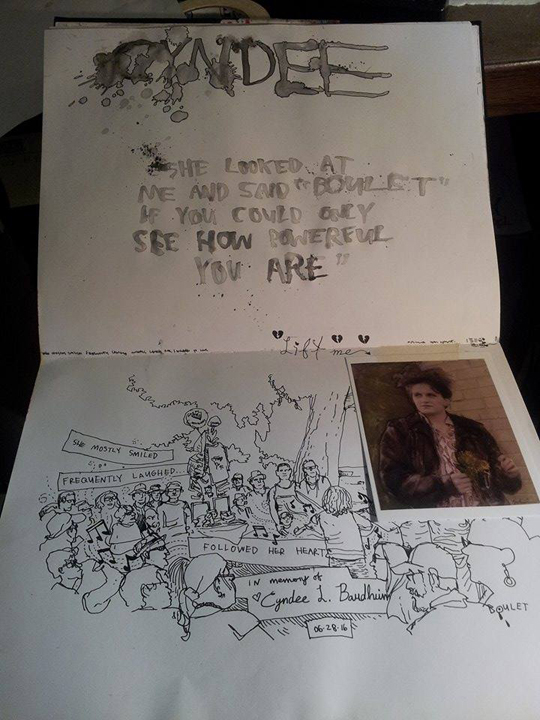 CYNDEE
SHE LOOKED AT
ME AND SAID "BOULET"
IF YOU COULD ONLY
SEE HOW POWERFUL
YOU ARE"
"Lift me"
SHE MOSTLY SMILED
FREQUENTLY LAUGHED...
FOLLOWED HER HEART
IN memory of
Cyndee L. Bardhum
06·28·16
BOULET